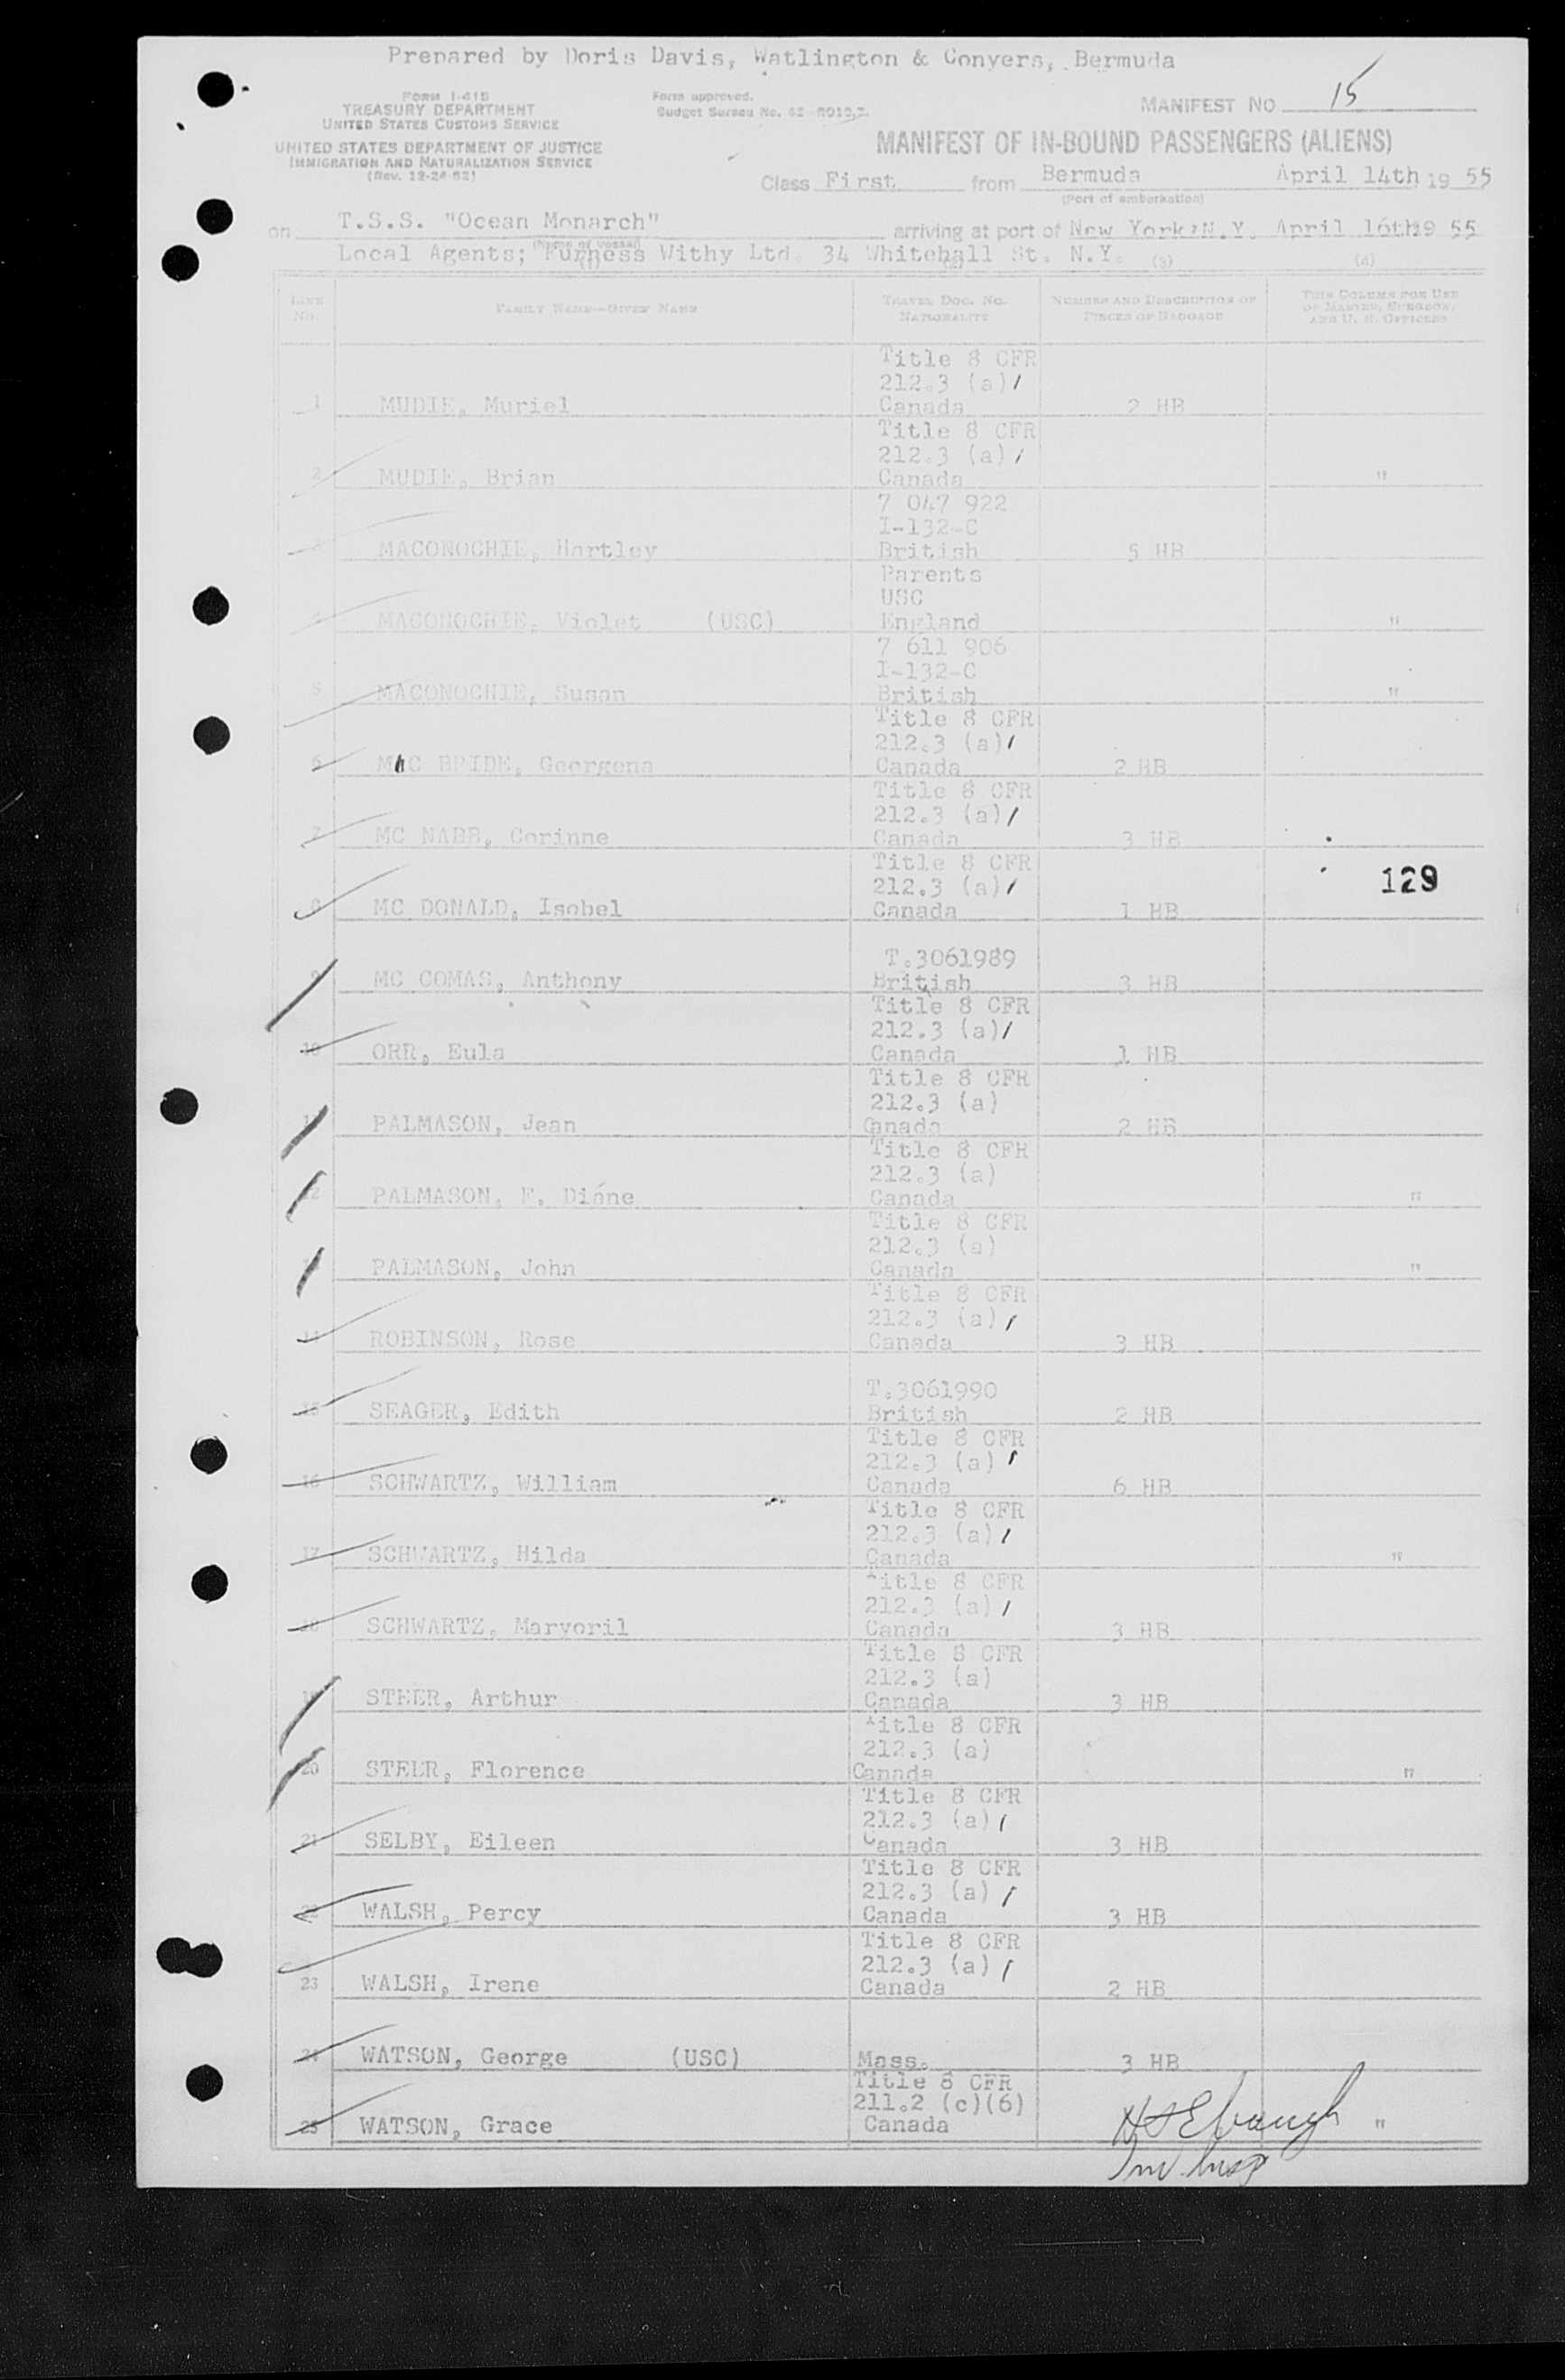 Prepared by Doris Davis, Watlington & Conyers, Bermuda
FORM I-418
TREASURY DEPARTMENT
UNITED STATES CUSTOMS SERVICE
UNITED STATES DEPARTMENT OF JUSTICE
IMMIGRATION AND NATURALIZATION SERVICE
(Rev. 12-24-52)
Form approved.
Budget Bureau No.
MANIFEST NO 15
MANIFEST OF IN-BOUND PASSENGERS (ALIENS)
Class First from Bermuda April 14th 19 55
(Port of embarkation)
on T.S.S. "Ocean Monarch" arriving at port of New York, N.Y. April 16th 19 55
(Name of vessel)
Local Agents; Furness Withy Ltd. 34 Whitehall St. N.Y.
(1) (2) (3) (4)
LINE NO.
FAMILY NAME—GIVEN NAME
TRAVEL DOC. NO. NATIONALITY
NUMBER AND DESCRIPTION OF PIECES OF BAGGAGE
THIS COLUMN FOR USE OF MASTER, SURGEON, AND U. S. OFFICERS
Title 8 CFR
212.3 (a)
1 MUDIE, Muriel Canada 2 HB
Title 8 CFR
212.3 (a)
2 MUDIE, Brian Canada "
7 047 922
I-132-C
3 MACONOCHIE, Hartley British 5 HB
Parents
USC
4 MACONOCHIE, Violet (USC) England "
7 611 906
I-132-C
5 MACONOCHIE, Susan British "
Title 8 CFR
212.3 (a)
6 MC BRIDE, Georgena Canada 2 HB
Title 8 CFR
212.3 (a)
7 MC NABB, Corinne Canada 3 HB
Title 8 CFR
212.3 (a)
129
8 MC DONALD, Isobel Canada 1 HB
T.3061989
9 MC COMAS, Anthony British 3 HB
Title 8 CFR
212.3 (a)
10 ORR, Eula Canada 1 HB
Title 8 CFR
212.3 (a)
11 PALMASON, Jean Canada 2 HB
Title 8 CFR
212.3 (a)
12 PALMASON, F. Diane Canada "
Title 8 CFR
212.3 (a)
13 PALMASON, John Canada "
Title 8 CFR
212.3 (a)
14 ROBINSON, Rose Canada 3 HB
T.3061990
15 SEAGER, Edith British 2 HB
Title 8 CFR
212.3 (a)
16 SCHWARTZ, William Canada 6 HB
Title 8 CFR
212.3 (a)
17 SCHWARTZ, Hilda Canada "
Title 8 CFR
212.3 (a)
18 SCHWARTZ, Maryoril Canada 3 HB
Title 8 CFR
212.3 (a)
19 STEER, Arthur Canada 3 HB
Title 8 CFR
212.3 (a)
20 STEER, Florence Canada "
Title 8 CFR
212.3 (a)
21 SELBY, Eileen Canada 3 HB
Title 8 CFR
212.3 (a)
22 WALSH, Percy Canada 3 HB
Title 8 CFR
212.3 (a)
23 WALSH, Irene Canada 2 HB
24 WATSON, George (USC) Mass. 3 HB
Title 8 CFR
211.2 (c)(6)
25 WATSON, Grace Canada "
Imm. Insp